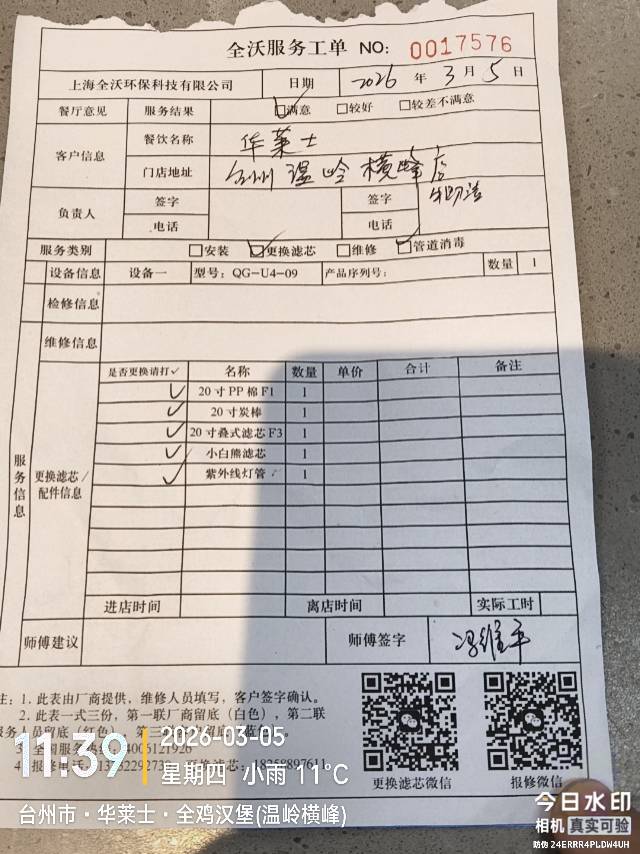 全沃服务工单 NO: 0017576
上海全沃环保科技有限公司 日期 2026 年 3 月 5 日
餐厅意见 服务结果 满意 较好 较差不满意
客户信息 餐饮名称 华莱士
门店地址 台州 温岭 横峰店
负责人 签字 签字
电话 电话
服务类别 安装 更换滤芯 维修 管道消毒
设备信息 设备一 型号：QG-U4-09 产品序列号： 数量 1
检修信息
维修信息
服务信息
更换滤芯／配件信息
是否更换请打✓ 名称 数量 单价 合计 备注
✓ 20寸PP棉F1 1
✓ 20寸炭棒 1
✓ 20寸叠式滤芯F3 1
✓ 小白熊滤芯 1
✓ 紫外线灯管 1
进店时间 离店时间 实际工时
师傅建议 师傅签字
注：1. 此表由厂商提供，维修人员填写，客户签字确认。
2. 此表一式三份，第一联厂商留底（白色），第二联
更换滤芯微信 报修微信
11:39 2026-03-05
星期四 小雨 11℃
台州市·华莱士·全鸡汉堡(温岭横峰)
今日水印
相机 真实可验
防伪 24ERRR4PLDW4UH